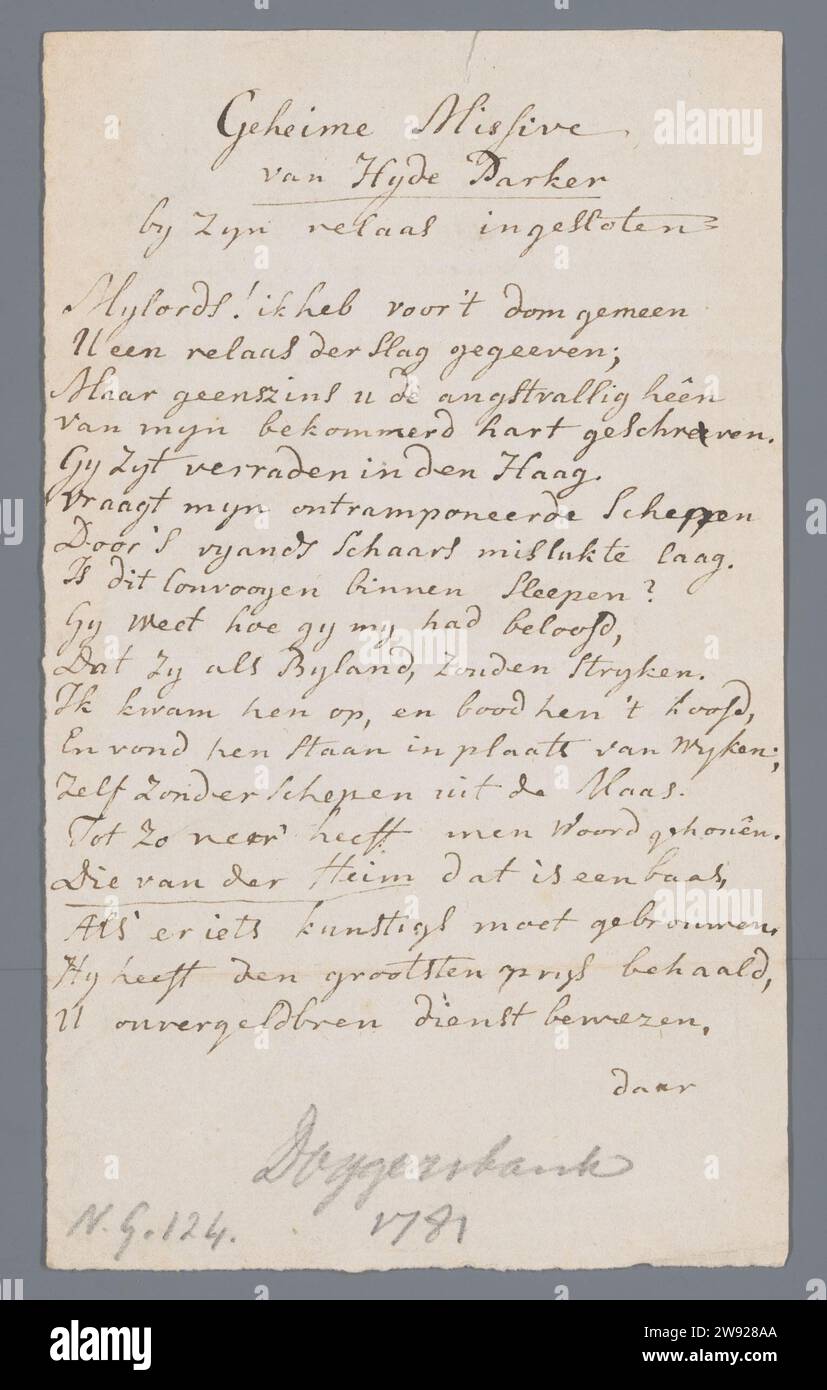 Geheime Missive
van Hyde Parker
by zyn relaas ingesloten
Mylords! ik heb voor't dom gemeen
U een relaas der slag gegeeven;
Maar geenszins u de angstvallig heên
van myn bekommerd hart geschreeven.
Gy zyt verraden in den Haag.
Vraagt myn ontramponeerde Schepen
Door's vyands schaars mislukte laag.
Is dit Convooyen binnen sleepen?
Gy weet hoe gy my had beloofd,
Dat zy als Byland, zouden stryken.
Ik kwam hen op, en bood hen 't hoofd,
En vond hen staan in plaats van wyken;
Zelf zonder schepen uit de Maas.
Tot zo veer heeft men woord gehouên.
Die van der Heim dat is een baas,
Als er iets kunstigs moet gebrouwen.
Hy heeft den grootsten prys behaald,
U onvergeldbren dienst bewezen.
daar
Doggersbank
N.G.124.
1781
alamy
alamy
alamy
Image ID: 2W928AA
www.alamy.com